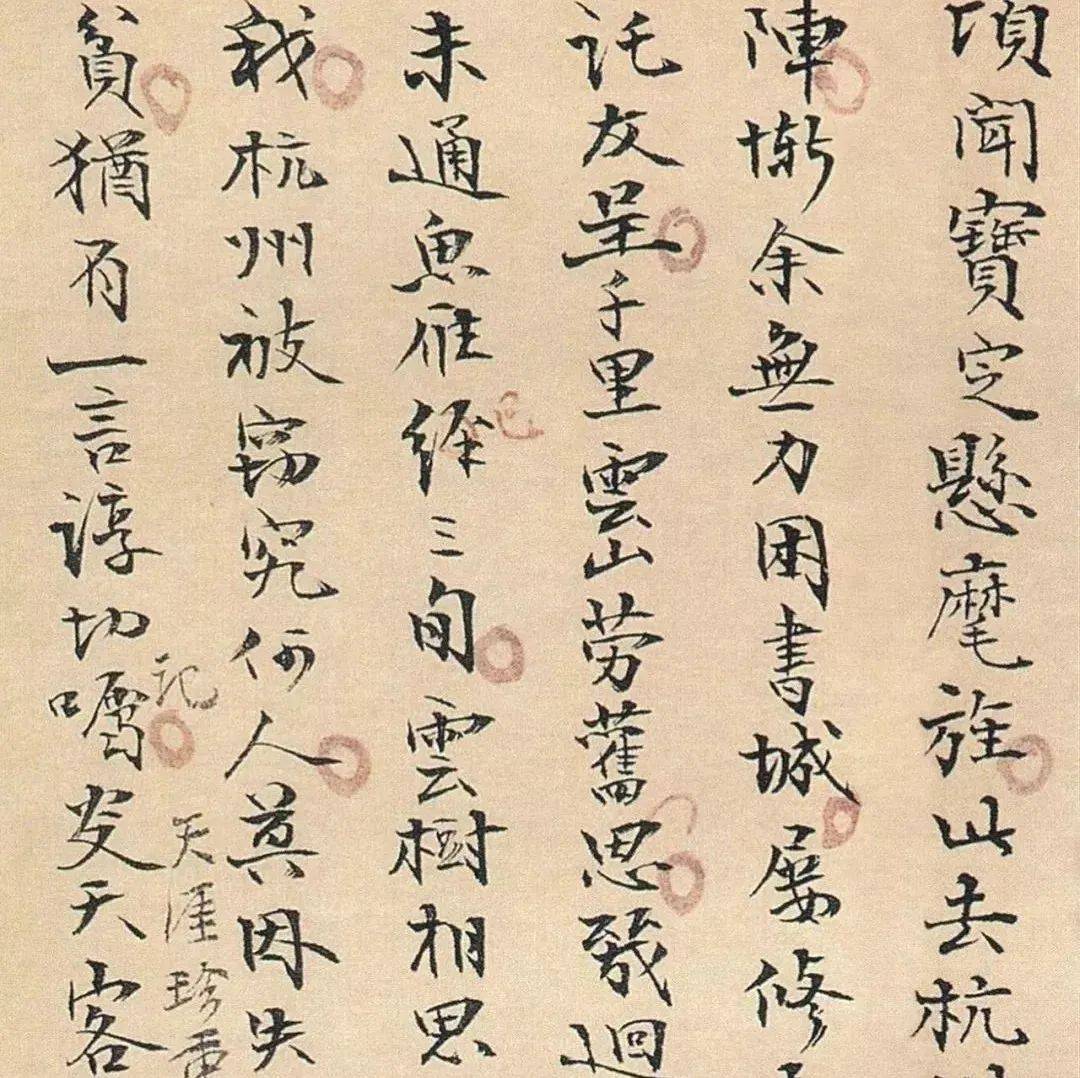 頃聞寶定懸麾旌此去杭
陣慚余無力困書城屢修
託友呈千里雲山勞舊思幾迴
未通魚雁經三旬雲樹相思
我杭州被竊究何人莫因失
記 天涯珍重
貧猶有一言諄切囑炎天客